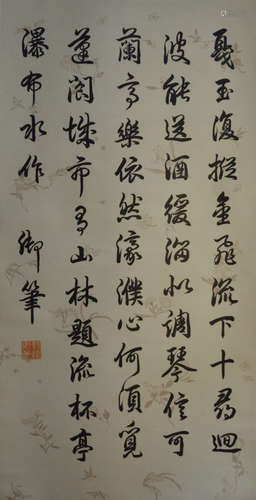 戛玉復摐金飛流下十尋迴
波能送酒緩溜似調琴信可
蘭亭樂依然濠濮心何須覓
蓬閬城市有山林題流杯亭
瀑布水作 御筆